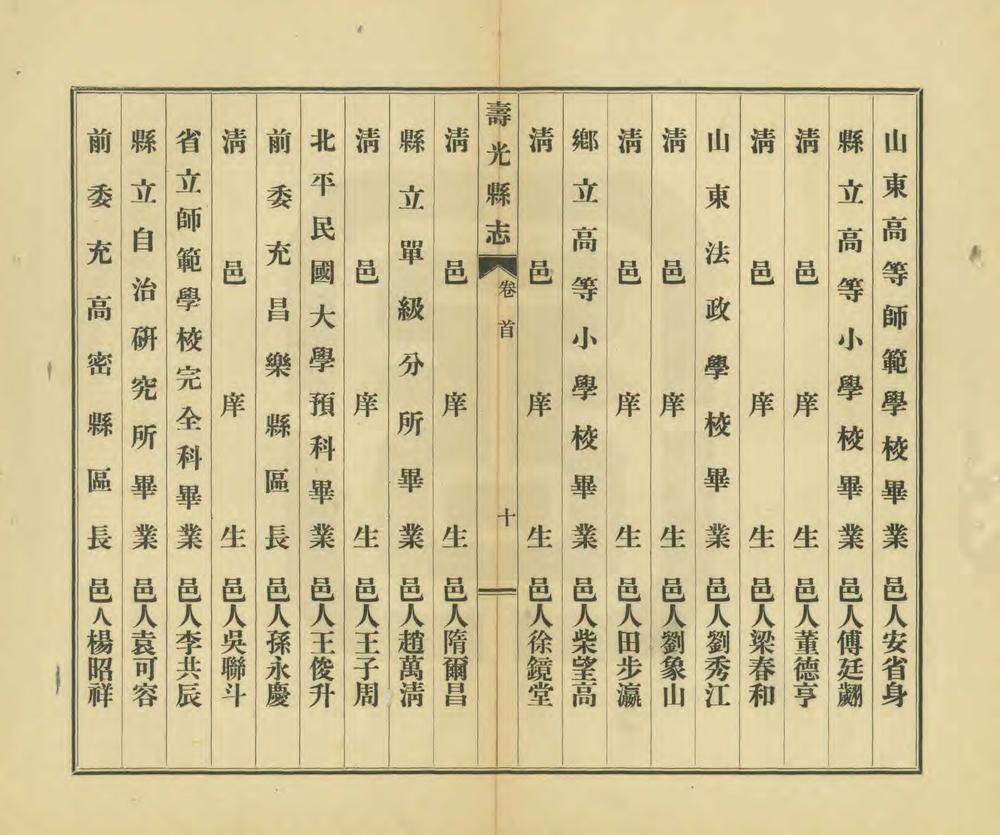 山東高等師範學校畢業邑人安省身
縣立高等小學校畢業邑人傅廷翽
清邑庠生邑人董德亨
清邑庠生邑人梁春和
山東法政學校畢業邑人劉秀江
清邑庠生邑人劉象山
清邑庠生邑人田步瀛
鄉立高等小學校畢業邑人柴望高
清邑庠生邑人徐鏡堂
壽光縣志 卷首 十
清邑庠生邑人隋爾昌
縣立單級分所畢業邑人趙萬清
清邑庠生邑人王子周
北平民國大學預科畢業邑人王俊升
前委充昌樂縣區長邑人孫永慶
清邑庠生邑人吳聯斗
省立師範學校完全科畢業邑人李共辰
縣立自治研究所畢業邑人袁可容
前委充高密縣區長邑人楊昭祥